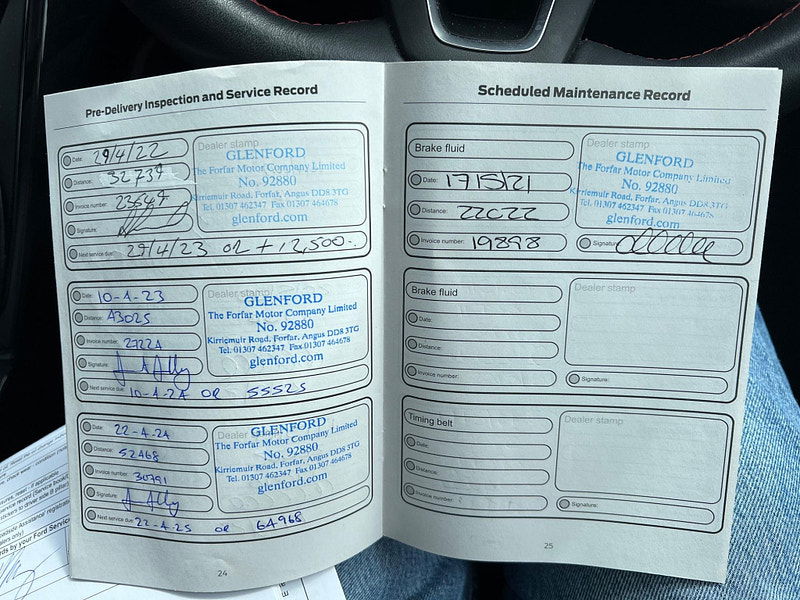 Pre-Delivery Inspection and Service Record
Date: 29/4/22
Distance: 32739
Invoice number: 23649
Signature:
Next service due: 29/4/23 or + 12,500.
Dealer stamp
GLENFORD
The Forfar Motor Company Limited
No. 92880
Kirriemuir Road, Forfar, Angus DD8 3TG
Tel. 01307 462347 Fax 01307 464678
glenford.com
Date: 10-4-23
Distance: 43025
Invoice number: 27224
Signature:
Next service due: 10-4-24 OR 55525
Dealer stamp
GLENFORD
The Forfar Motor Company Limited
No. 92880
Kirriemuir Road, Forfar, Angus DD8 3TG
Tel. 01307 462347 Fax 01307 464678
glenford.com
Date: 22-4-24
Distance: 52468
Invoice number: 30791
Signature:
Next service due: 22-4-25 OR 64968
Dealer stamp
GLENFORD
The Forfar Motor Company Limited
No. 92880
Kirriemuir Road, Forfar, Angus DD8 3TG
Tel. 01307 462347 Fax 01307 464678
glenford.com
24
Scheduled Maintenance Record
Brake fluid
Date: 17/5/21
Distance: 22022
Invoice number: 19898
Dealer stamp
GLENFORD
The Forfar Motor Company Limited
No. 92880
Kirriemuir Road, Forfar, Angus DD8 3TG
Tel. 01307 462347 Fax 01307 464678
glenford.com
Signature:
Brake fluid
Date:
Distance:
Invoice number:
Dealer stamp
Signature:
Timing belt
Date:
Distance:
Invoice number:
Dealer stamp
Signature:
25